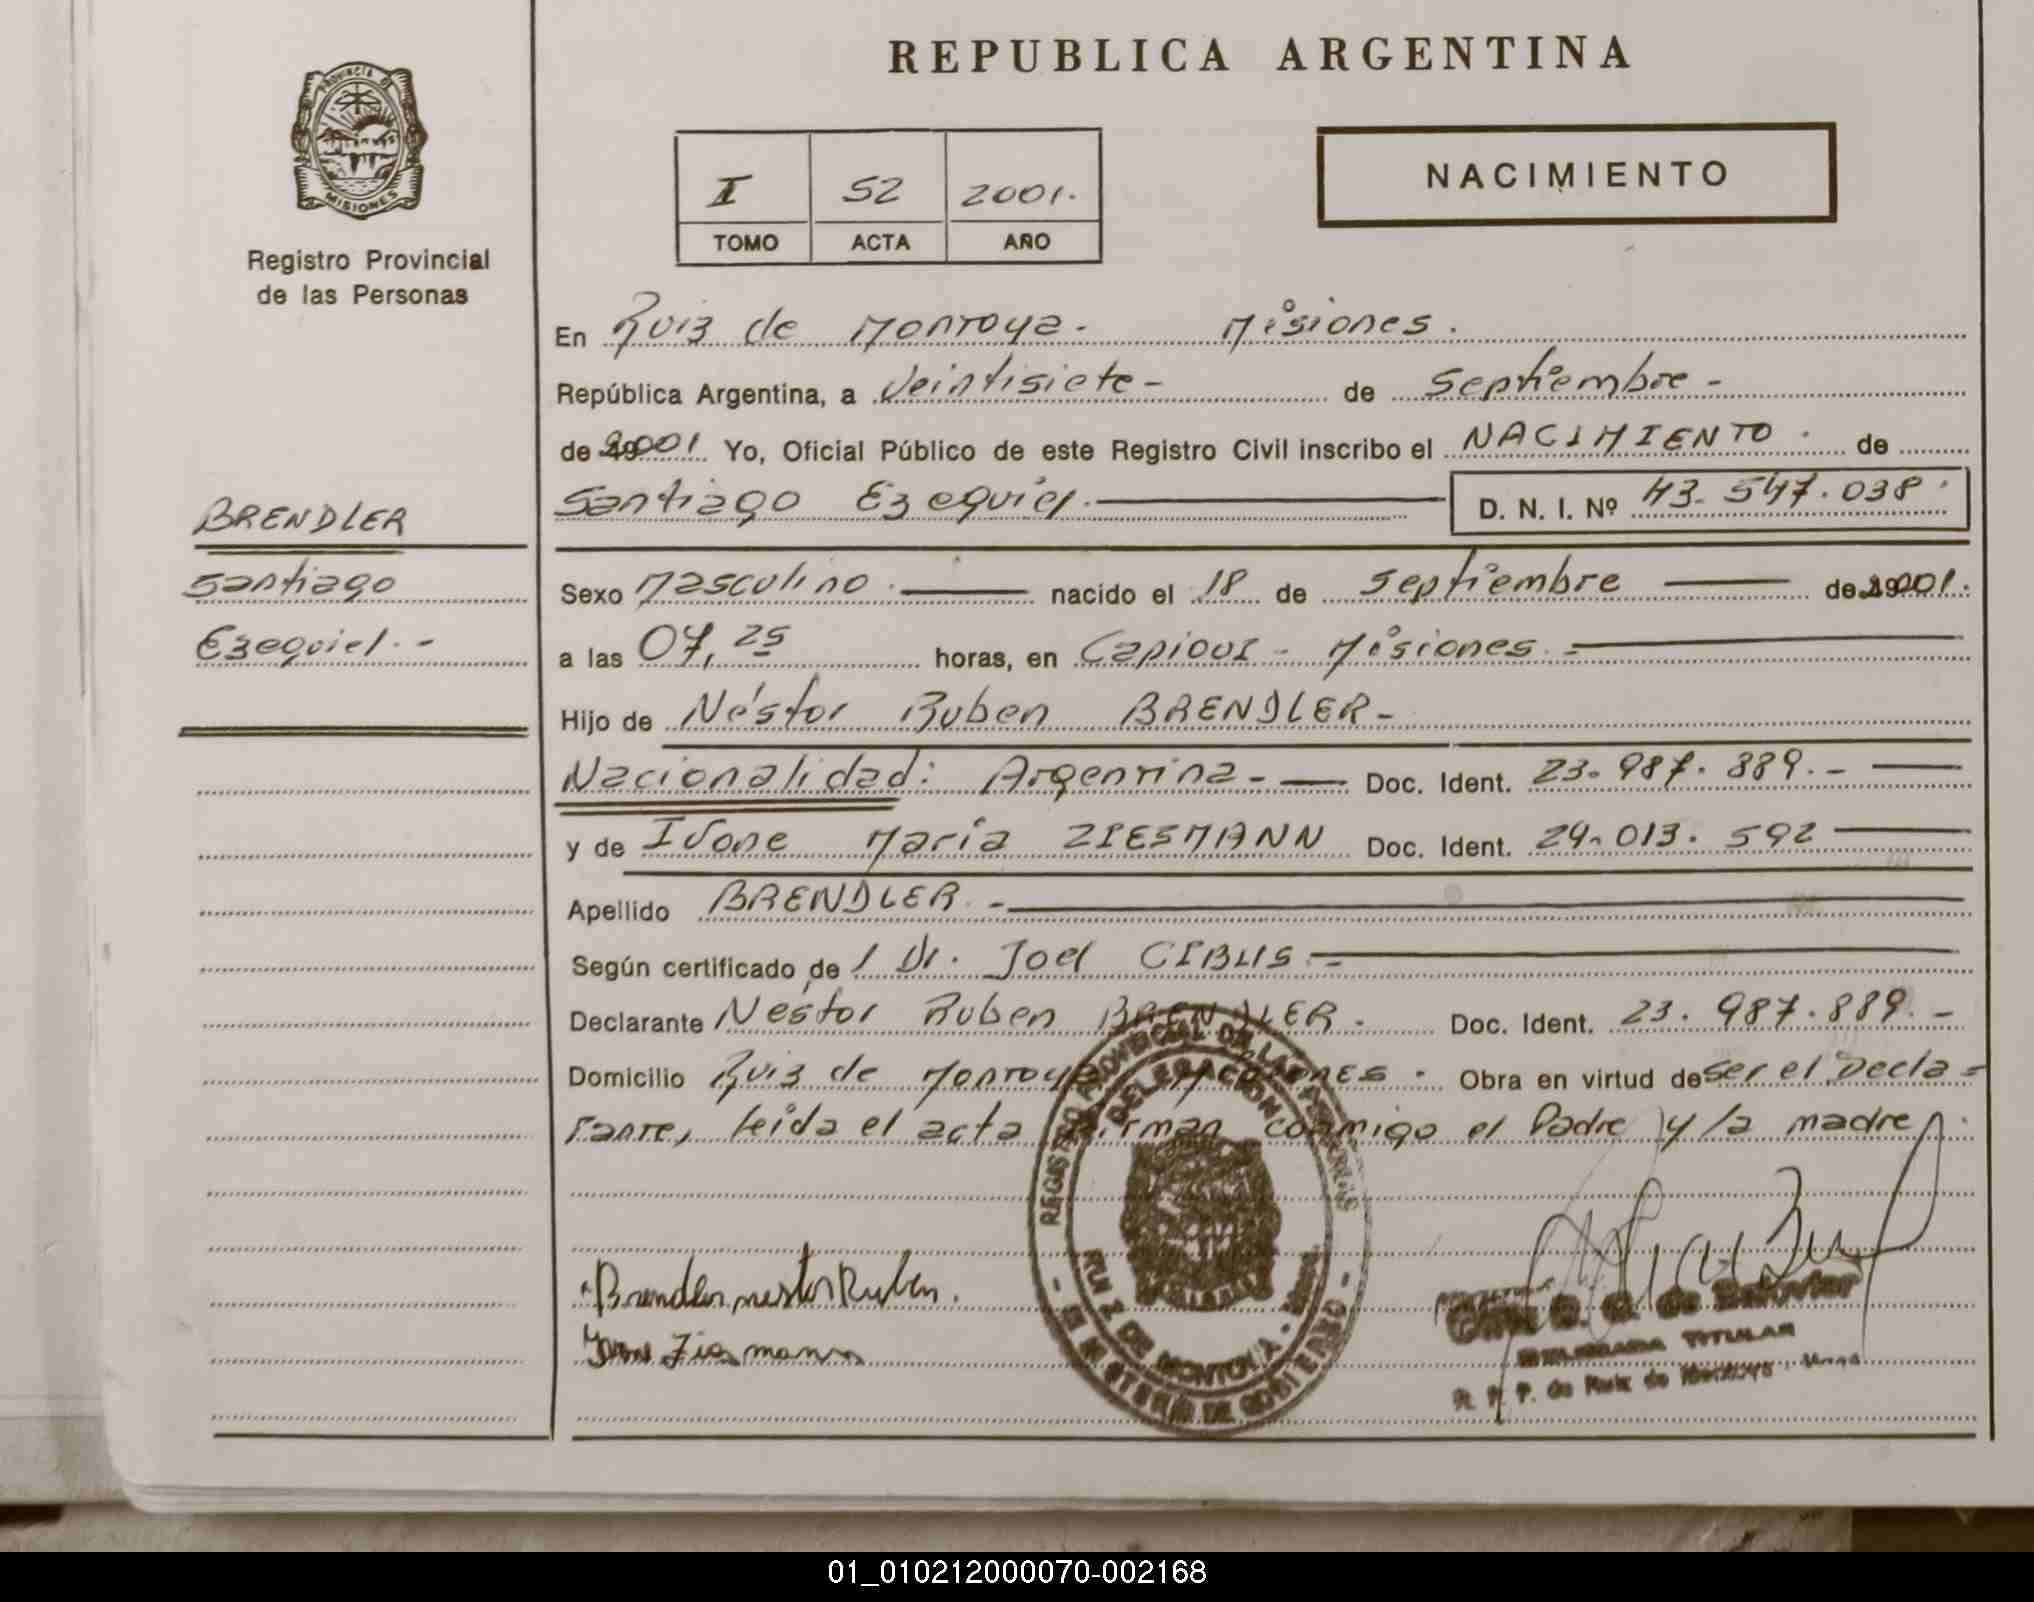 REPUBLICA ARGENTINA
PROVINCIA DE
MISIONES
Registro Provincial
de las Personas
I 52 2001.
TOMO ACTA AÑO
NACIMIENTO
En Ruiz de Montoya - Misiones.
República Argentina, a Veintisiete - de Septiembre -
de 2001 Yo, Oficial Público de este Registro Civil inscribo el NACIMIENTO. de
Santiago Ezequiel. D. N. I. Nº 43.547.038.
BRENDLER
Santiago
Ezequiel. -
Sexo Masculino. nacido el 18 de Septiembre de 2001.
a las 07,25 horas, en Capioví - Misiones. -
Hijo de Néstor Ruben BRENDLER -
Nacionalidad: Argentina - Doc. Ident. 23.987.889. -
y de Ivone María ZIESMANN Doc. Ident. 24.013.592
Apellido BRENDLER. -
Según certificado de / Dr. Joel CIBLIS. -
Declarante Néstor Ruben BRENDLER. Doc. Ident. 23.987.889. -
Domicilio Ruiz de Montoya Misiones. Obra en virtud de ser el Decla=
rante, leída el acta firman conmigo el Padre y la madre.
REGISTRO PROVINCIAL DE LAS PERSONAS
DELEGACION
RUIZ DE MONTOYA -
- MINISTERIO DE GOBIERNO -
Brendler nestor Ruben.
Ivone Ziesmann
DELEGADA TITULAR
R. P. P. de Ruiz de Montoya - Mnes.
01_010212000070-002168